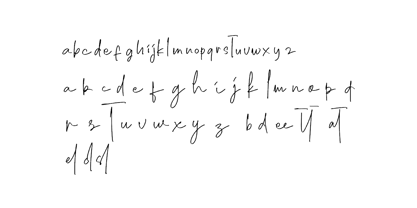 abcdefghijklmnopqrstuvwxyz
a b c d e f g h i j k l m n o p d
r s t u v w x y z b d ee tt at
el dd st